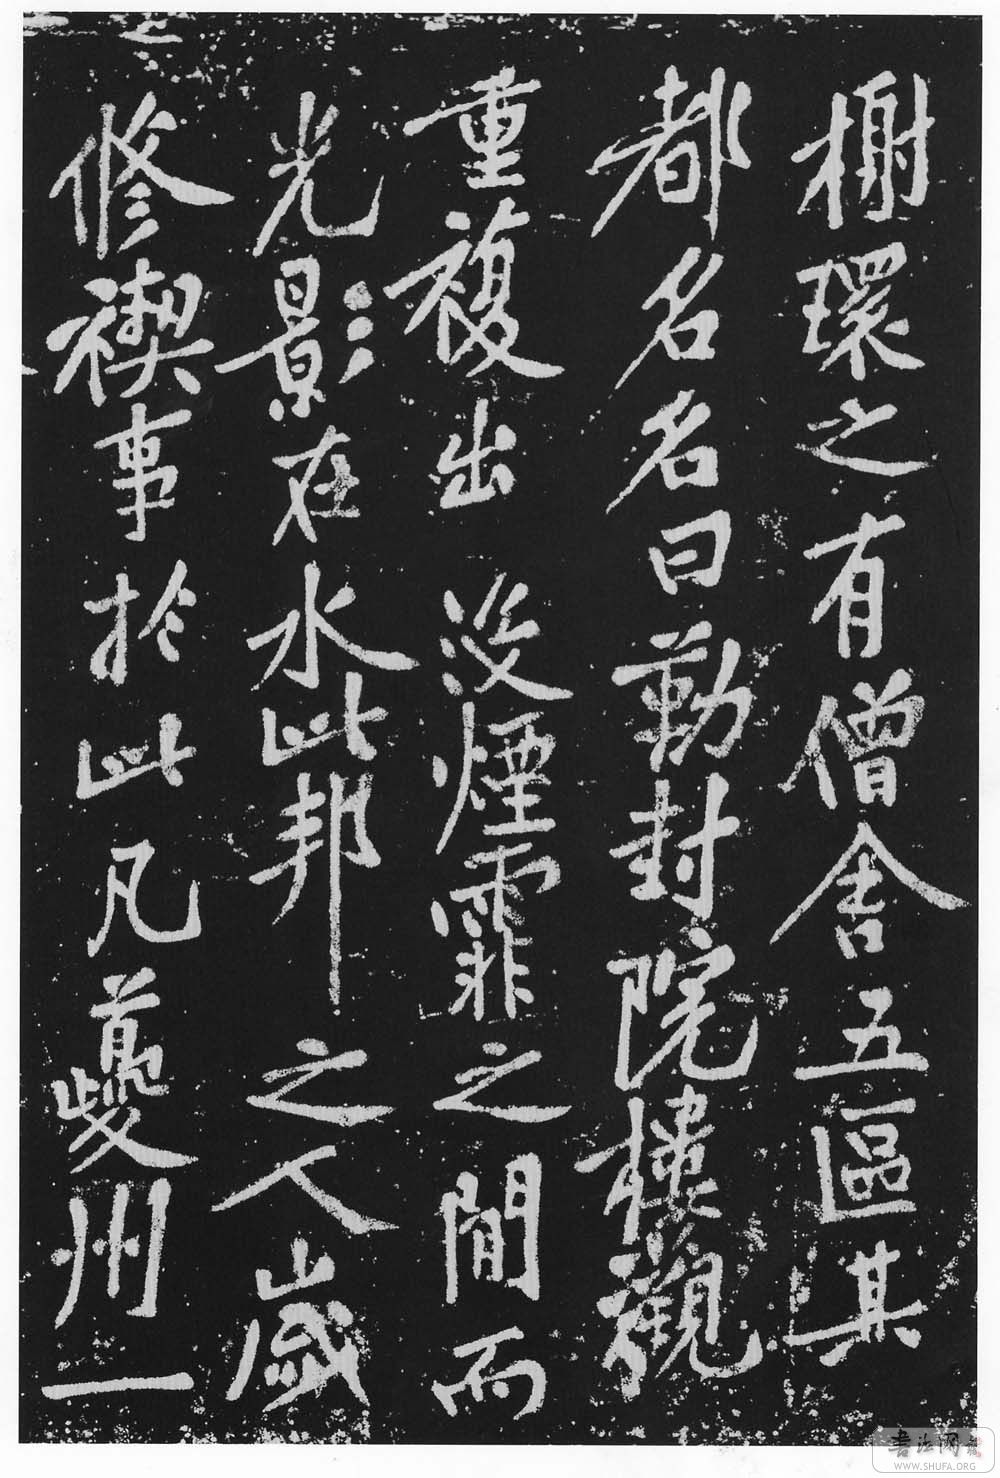 榭環之有僧舍五區其
都名名曰勤封院樓觀
重複出没煙霏之間而
光影在水此邦之人歲
修禊事於此凡夔州一
書法网
WWW.SHUFA.ORG